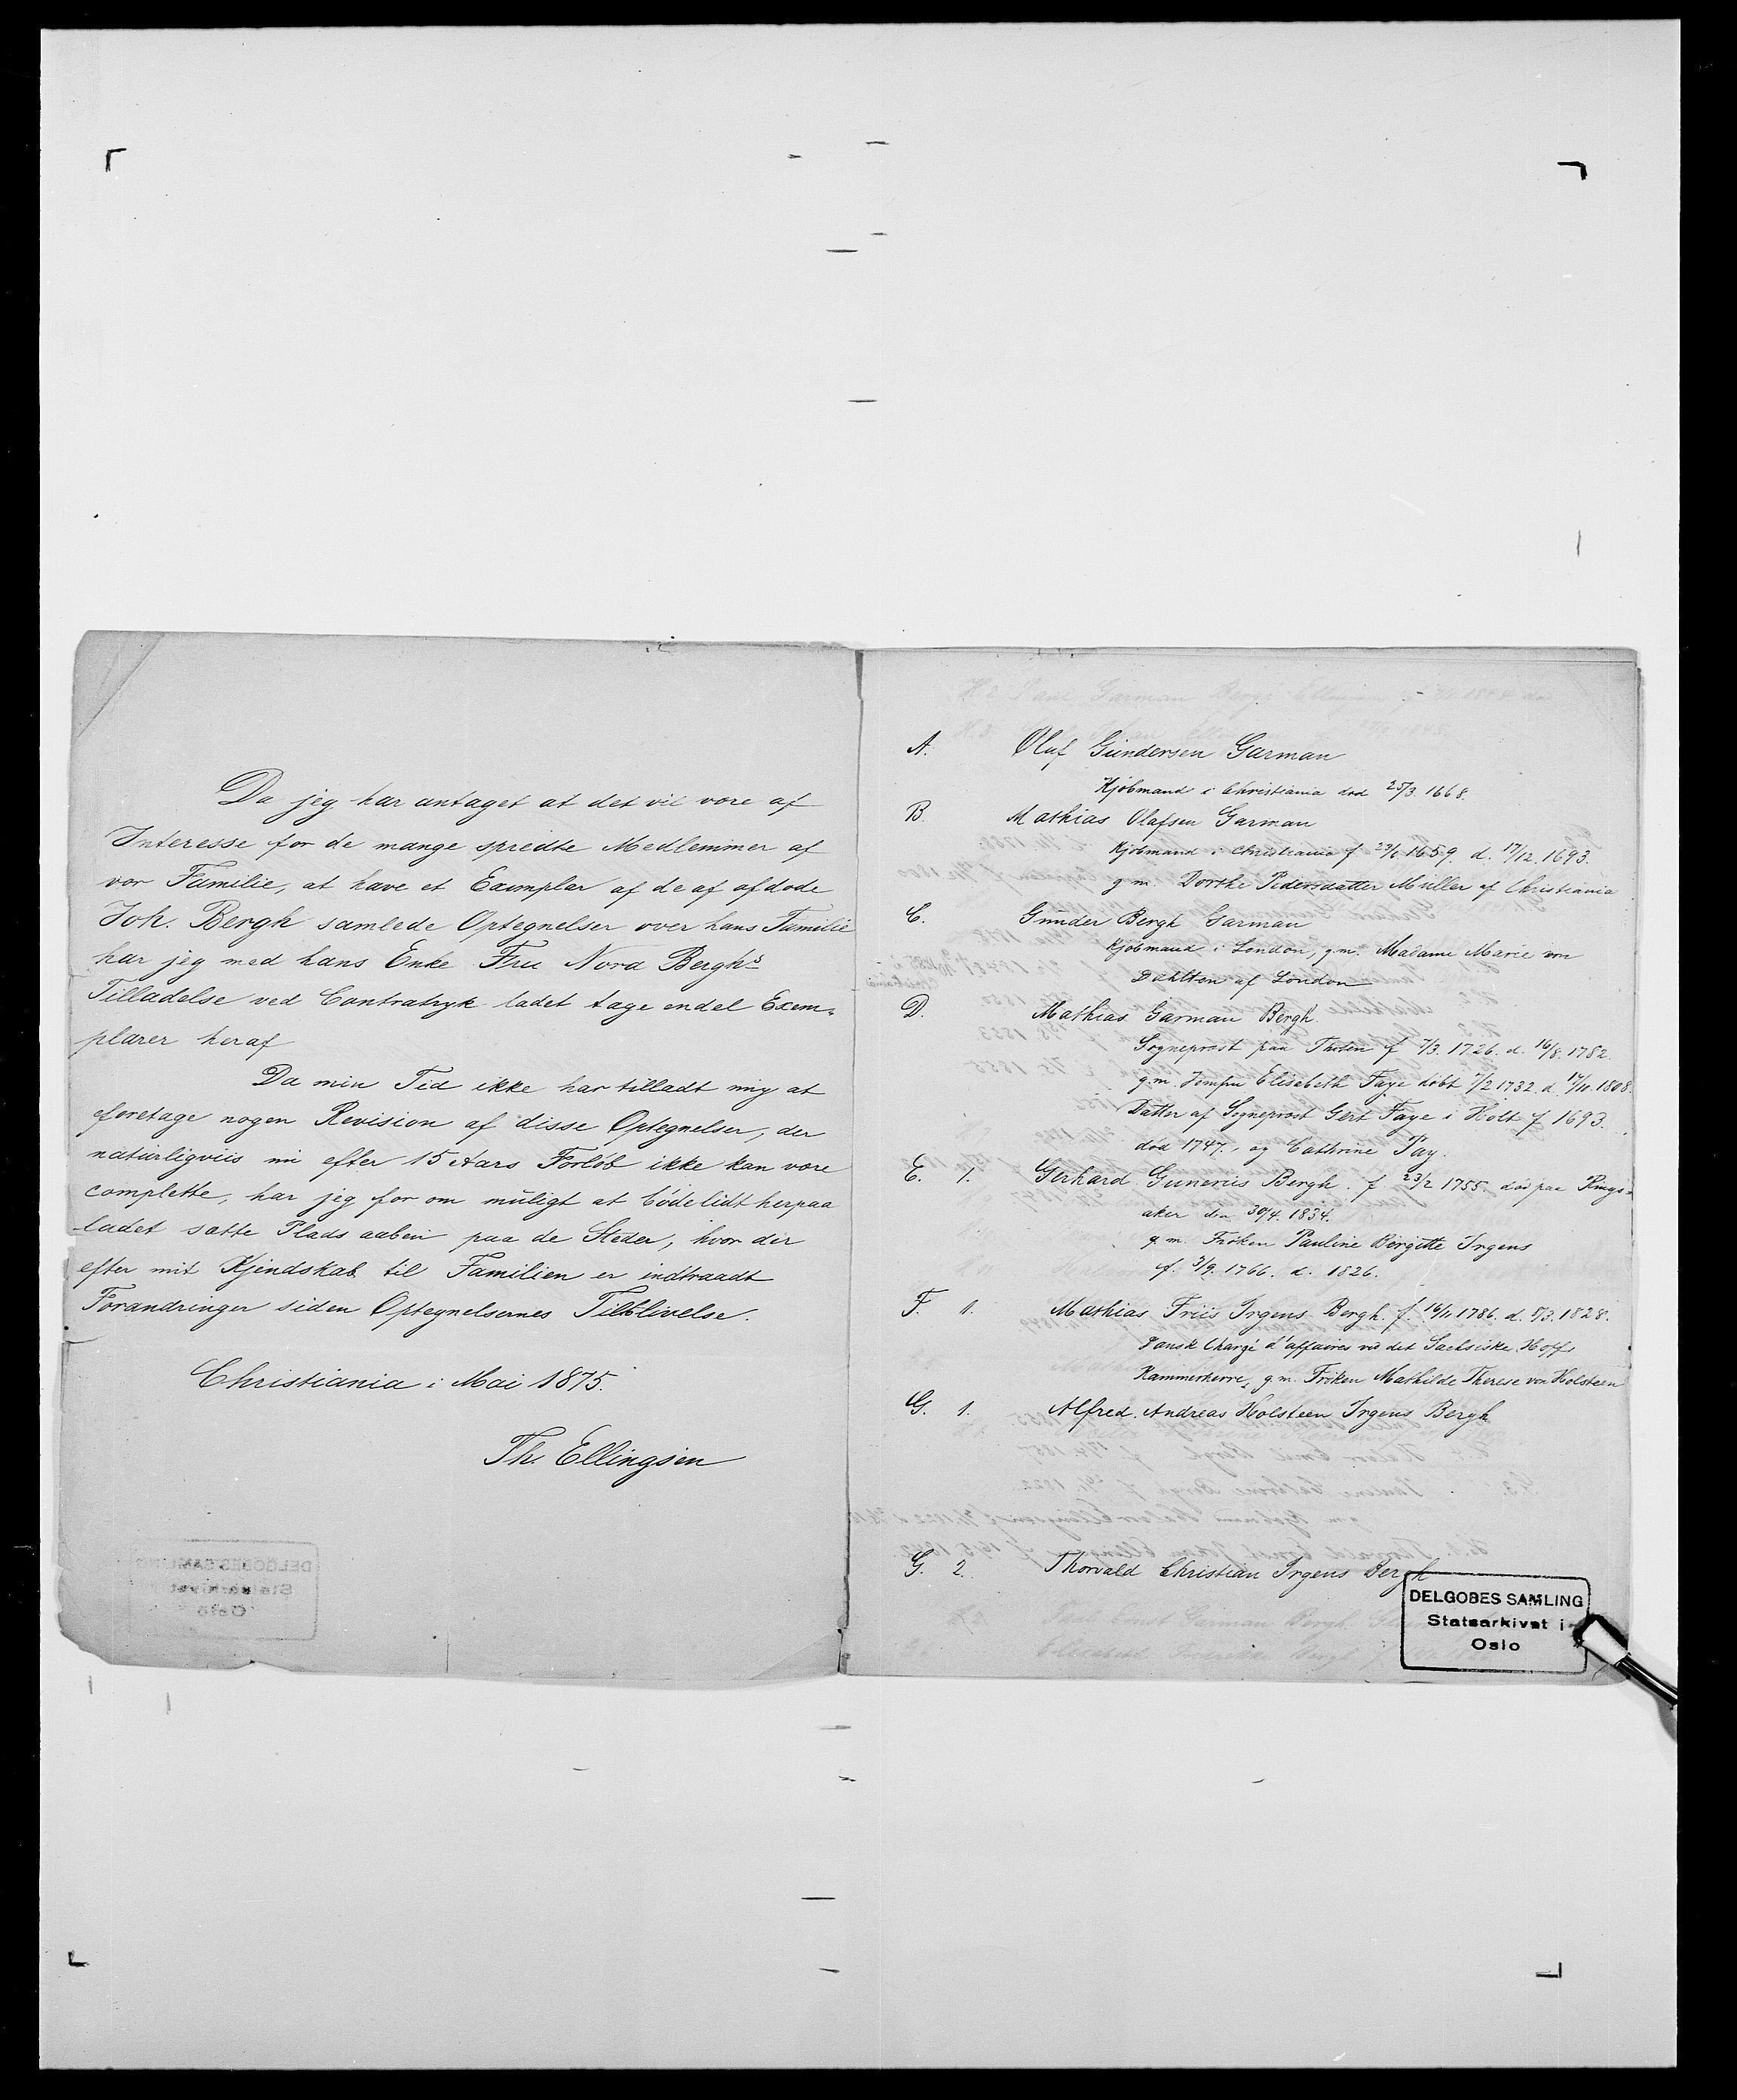 Da jeg har antaget at det vil være af
Interesse for de mange spredte Medlemmer af
vor Familie, at have et Exemplar af de af afdøde
Joh. Bergh samlede Optegnelser over hans Familie
har jeg med hans Enke Fru Nora Berghs
Tilladelse ved Contratryk ladet tage endel Exem=
plarer heraf
Da min Tid ikke har tilladt mig at
foretage nogen Revision af disse Optegnelser, der
naturligviis nu efter 15 Aars Forløb ikke kan være
complette, har jeg for om muligt at bøde lidt herpaa
ladet sætte Plads aaben paa de Steder, hvor der
efter mit Kjendskab til Familien er indtraadt
Forandringer siden Optegnelsernes Tilblivelse.
Christiania i Mai 1875.
Th. Ellingsen
A. Oluf Gundersen Garman
Kjøbmand i Christiania død 25/3. 1668.
B. Mathias Olafsen Garman
Kjøbmand i Christiania f 1659. d. 17/12. 1693.
g. m. Dorthe Pedersdatter Müller af Christiania
C. Gunder Bergh Garman
Kjøbmand i London, g.m. Madame Marie von
Dahlten af London
D. Mathias Garman Bergh.
Sogneprost paa Thoten f 7/3. 1726. d. 16/8. 1782.
g.m. Jomfru Elisabeth Faye døbt 7/2 1732. d. 17/11. 1808.
Datter af Sogneprost Gert Faye i Holt f 1693.
død 1747., og Cathrine Pay.
E. 1. Gerhard Gunerius Bergh. f 23/2 1755. død paa Rings=
aker den 30/4. 1834.
g. m. Frøken Pauline Birgitte Irgens
f. 3/9. 1766. d. 1826.
F. 1. Mathias Friis Irgens Bergh. f. 16/11 1786. d. 5/3. 1828.
Dansk Chargé d'affaires ved det Sachsiske Hoff,
Kammerherre, g.m. Frøken Mathilde Therese von Holsteen
G. 1. Alfred Andreas Holsteen Irgens Bergh
G. 2. Thorvald Christian Irgens Bergh
DELGOBES SAMLING
Statsarkivet i
Oslo